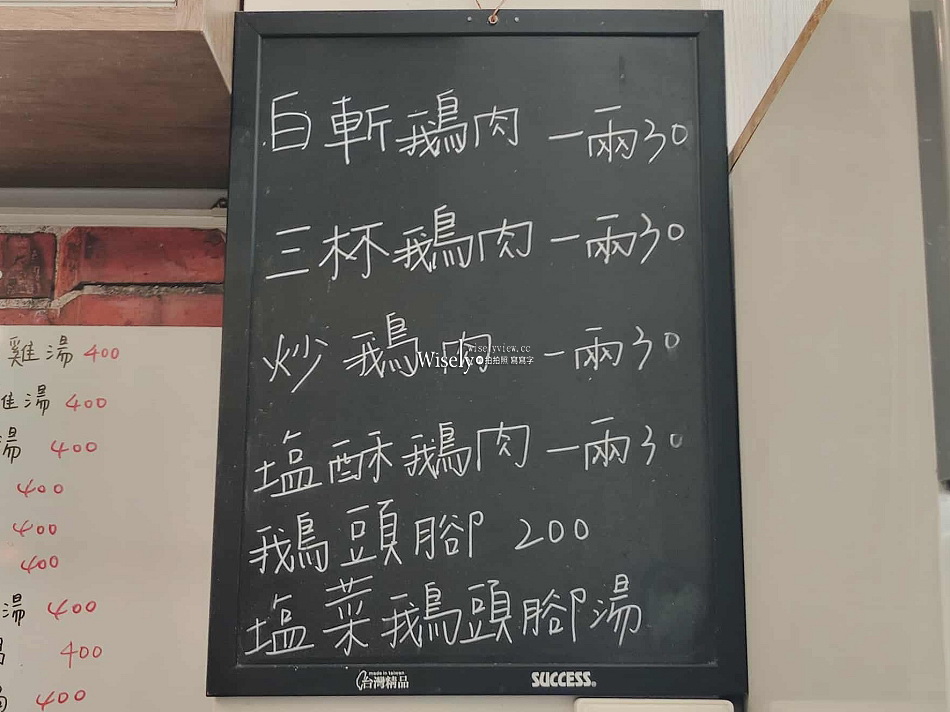 白斬鵝肉 一兩30
三杯鵝肉 一兩30
炒鵝肉 一兩30
塩酥鵝肉 一兩30
鵝頭腳 200
塩菜鵝頭腳湯
雞湯 400
雞湯 400
湯 400
400
400
400
湯 400
400
400
Wisely
wiselyview.cc
拍拍照 寫寫字
made in taiwan
台灣精品
SUCCESS®